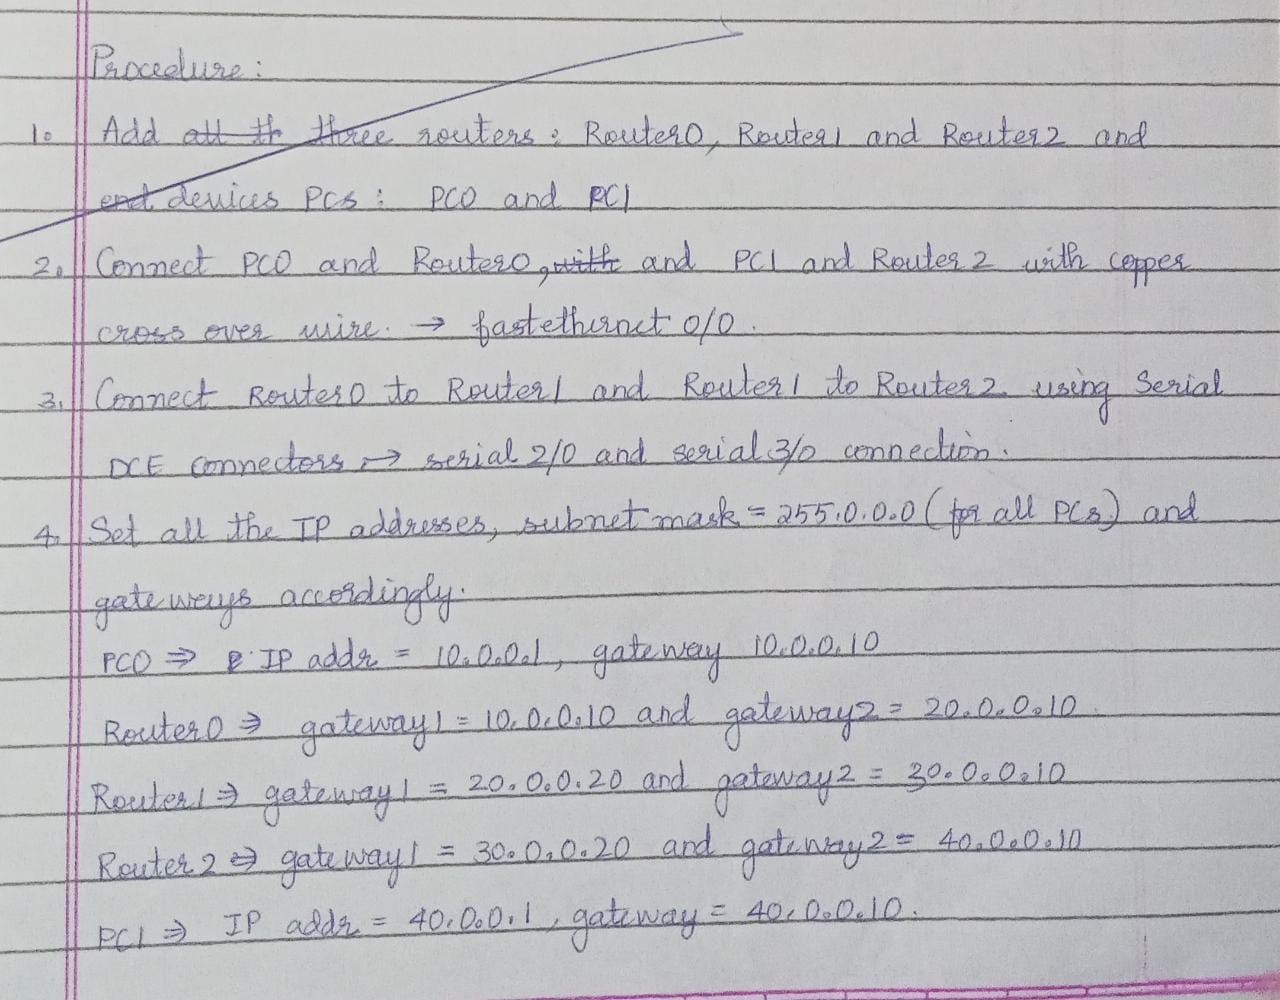 Procedure:
1. Add all th three routers: Router0, Router1 and Router2 and
end devices PCs: PC0 and PC1
2. Connect PC0 and Router0, with and PC1 and Router2 with copper
cross over wire. → fastethernet 0/0.
3. Connect Router0 to Router1 and Router1 to Router2 using Serial
DCE connectors → serial 2/0 and serial 3/0 connection.
4. Set all the IP addresses, subnet mask = 255.0.0.0 (for all PCs) and
gateways accordingly.
PC0 ⇒ IP addr = 10.0.0.1, gateway 10.0.0.10
Router0 ⇒ gateway1 = 10.0.0.10 and gateway2 = 20.0.0.10.
Router1 ⇒ gateway1 = 20.0.0.20 and gateway2 = 30.0.0.10
Router2 ⇒ gateway1 = 30.0.0.20 and gateway2 = 40.0.0.10
PC1 ⇒ IP addr = 40.0.0.1, gateway = 40.0.0.10.